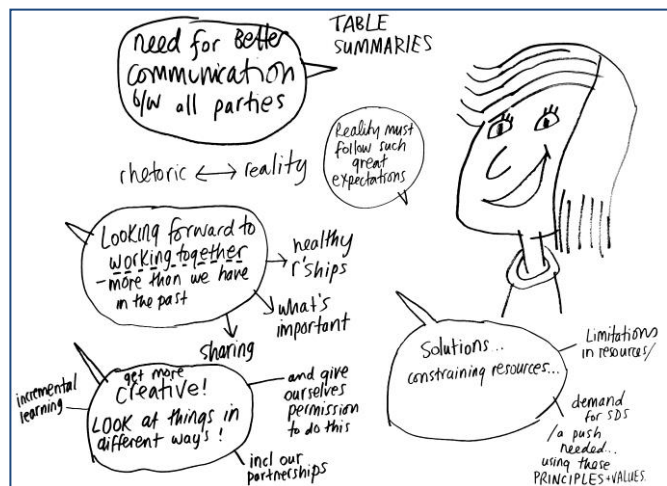 TABLE
SUMMARIES
need for Better
communication
b/w all parties
rhetoric ↔ reality
Reality must
follow such
great
expectations
Looking forward to
working together
- more than we have
in the past
healthy
r'ships
what's
important
sharing
get more
creative!
LOOK at things in
different way's!
incremental
learning
and give
ourselves
permission
to do this
incl our
partnerships
Solutions..
constraining resources...
Limitations
in resources/
demand
for SDS
/a push
needed...
using these
PRINCIPLES+VALUES.